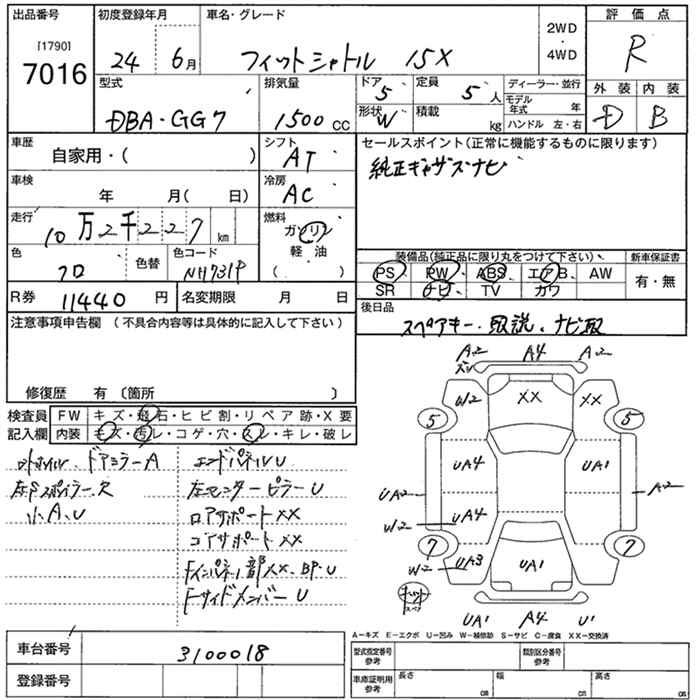 出品番号 初度登録年月 車名・グレード 2WD・4WD 評価点
[1790]
7016 24 6月 フィットシャトル 15X R
型式 排気量 ドア 5 定員 5人 ディーラー・並行 外装 内装
DBA・GG7 1500cc 形状 W 積載 kg モデル年式 年 D B
ハンドル 左・右
車歴 シフト セールスポイント(正常に機能するものに限ります)
自家用・( ) AT 純正ギャザズナビ
車検 年 月( 日) 冷房 AC
走行 燃料
10万2千227km ガソリン
軽・油
( )
色 色替 色コード 装備品(純正品に限り丸をつけて下さい) 新車保証書
クロ NH731P PS PW ABS エアB AW 有・無
SR ナビ TV カワ
R券 11440円 名変期限 月 日 後日品
注意事項申告欄 (不具合内容等は具体的に記入して下さい) スペアキー・取説、ナビ取
修復歴 有 〔箇所 〕
検査員 FW キズ・飛石・ヒビ割・リペア跡・X要
記入欄 内装 キズ・汚レ・コゲ・穴・スレ・キレ・破レ
ドアミラーA エンドパネルU
左Fスポイラー欠 左センターピラーU
小A、U コアサポートXX
コアサポートXX
Fインパネ、1部XX、BP、U
FサイドメンバーU
A2 A4 A2
W2 XX XX
5 5
UA4 UA1
UA2 A2
W2 UA4
7 7
W2 UA3 UA1
スペア
UA1 A4 U1
A−キズ E−エクボ U−凹み W−補修跡 S−サビ C−腐食 XX−交換済
車台番号 3100018 型式指定番号 参考 類別区分番号 参考
登録番号 車庫証明用 参考 長さ cm 幅 cm 高さ cm